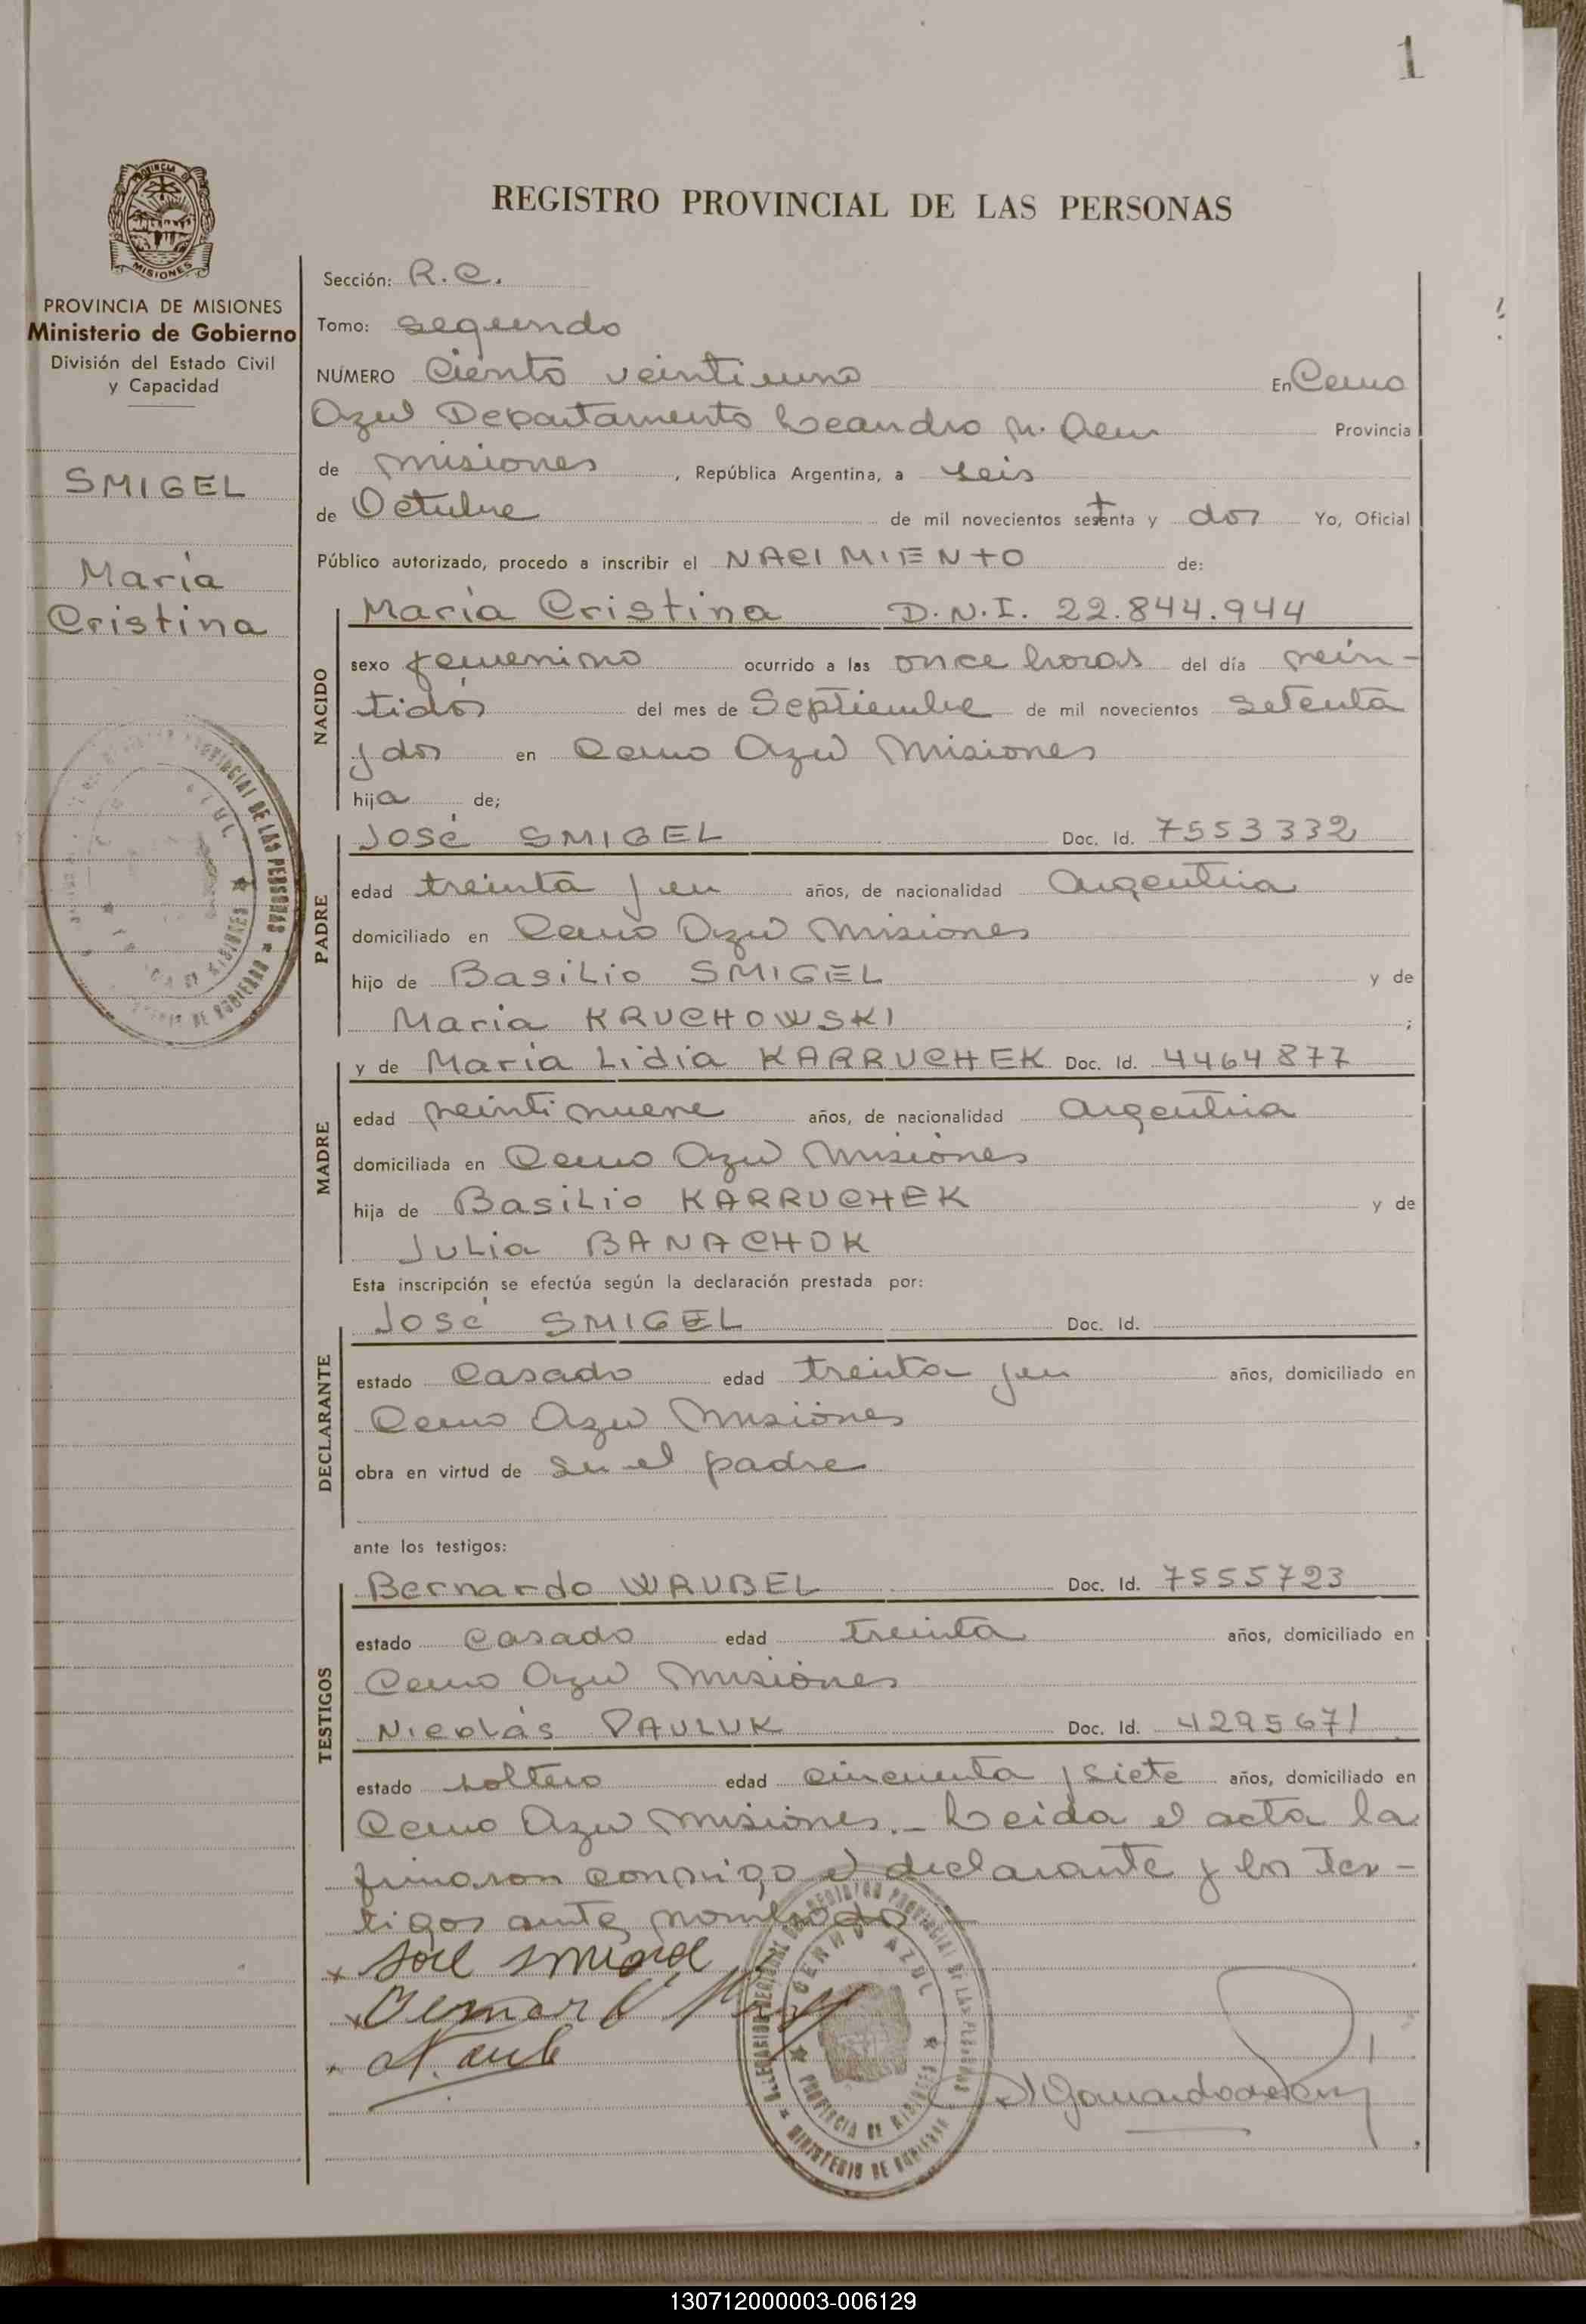 1
PROVINCIA DE
MISIONES
REGISTRO PROVINCIAL DE LAS PERSONAS
PROVINCIA DE MISIONES
Ministerio de Gobierno
División del Estado Civil
y Capacidad
SMIGEL
María
Cristina
PROVINCIAL DE LAS PERSONAS
Sección: R.C.
Tomo: segundo
NUMERO Ciento veintiuno En Cerro
Azul Departamento Leandro N. Alem Provincia
de Misiones, República Argentina, a seis
de Octubre de mil novecientos setenta y dos Yo, Oficial
Público autorizado, procedo a inscribir el NACIMIENTO de:
NACIDO
María Cristina D.N.I. 22.844.944
sexo femenino ocurrido a las once horas del día vein-
tidós del mes de Septiembre de mil novecientos setenta
y dos en Cerro Azul Misiones
hija de;
PADRE
José SMIGEL Doc. Id. 7553332
edad treinta y un años, de nacionalidad Argentina
domiciliado en Cerro Azul Misiones
hijo de Basilio SMIGEL y de
Maria KRUCHOWSKI ;
MADRE
y de María Lidia KARRUCHEK Doc. Id. 4464877
edad veintinueve años, de nacionalidad Argentina
domiciliada en Cerro Azul Misiones
hija de Basilio KARRUCHEK y de
Julia BANACHOK
Esta inscripción se efectúa según la declaración prestada por:
DECLARANTE
José SMIGEL Doc. Id.
estado Casado edad treinta y un años, domiciliado en
Cerro Azul Misiones
obra en virtud de ser el padre
ante los testigos:
TESTIGOS
Bernardo WRUBEL Doc. Id. 7555723
estado Casado edad treinta años, domiciliado en
Cerro Azul Misiones
Nicolás PAULUK Doc. Id. 4295671
estado soltero edad cincuenta y siete años, domiciliado en
Cerro Azul Misiones.- Leida el acta la
firmaron conmigo el declarante y los tes-
tigos ante nombrado
CERRO AZUL
PROVINCIA DE MISIONES
MINISTERIO DE GOBIERNO
130712000003-006129